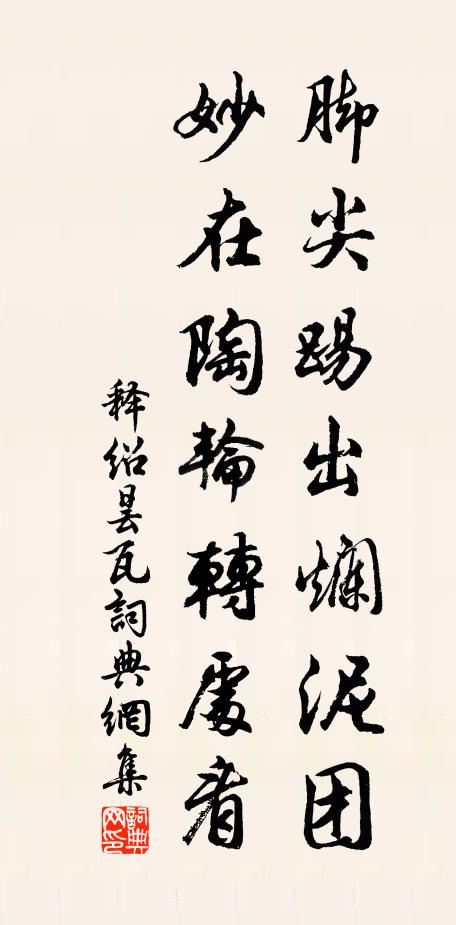 脚尖踢出爛泥团
妙在陶輪轉處看
释绍昙瓦詞典網集
詞典网印